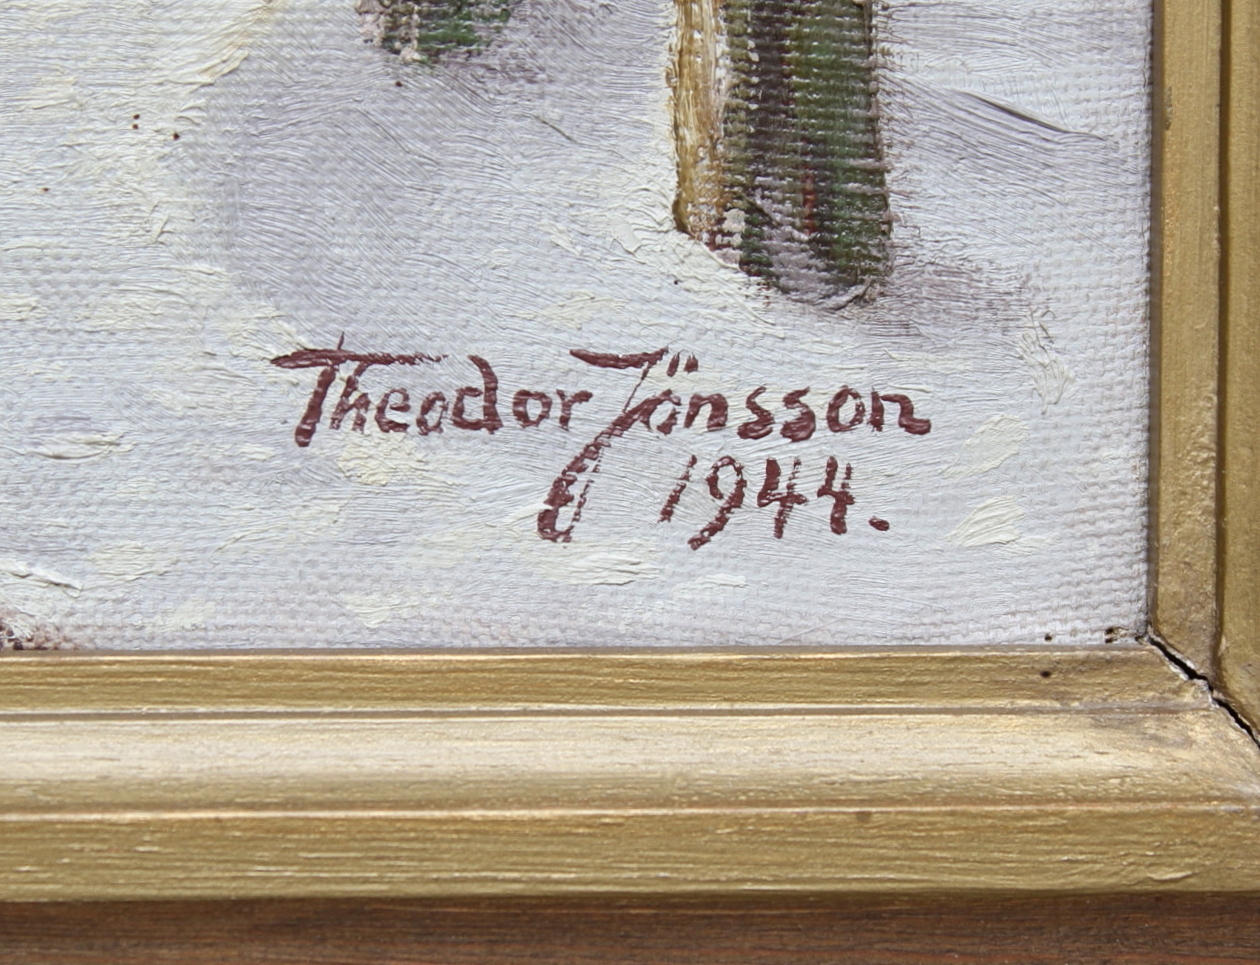 Theodor Jönsson
1944.